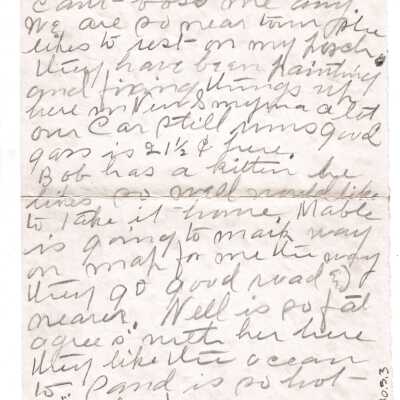 can't boss me any.
We are so near town she
likes to rest on my porch.
they have been painting
and fixing things up
here in New Smyrna a lot
our car still runs good
gas is 21½ ¢ here.
Bob has a kitten he
likes so well would like
to take it home. Mable
is going to mark way
on map for me the way
they go good road &
nearer. Nell is so fat
agrees with her here
they like the ocean
to. Sand is so hot